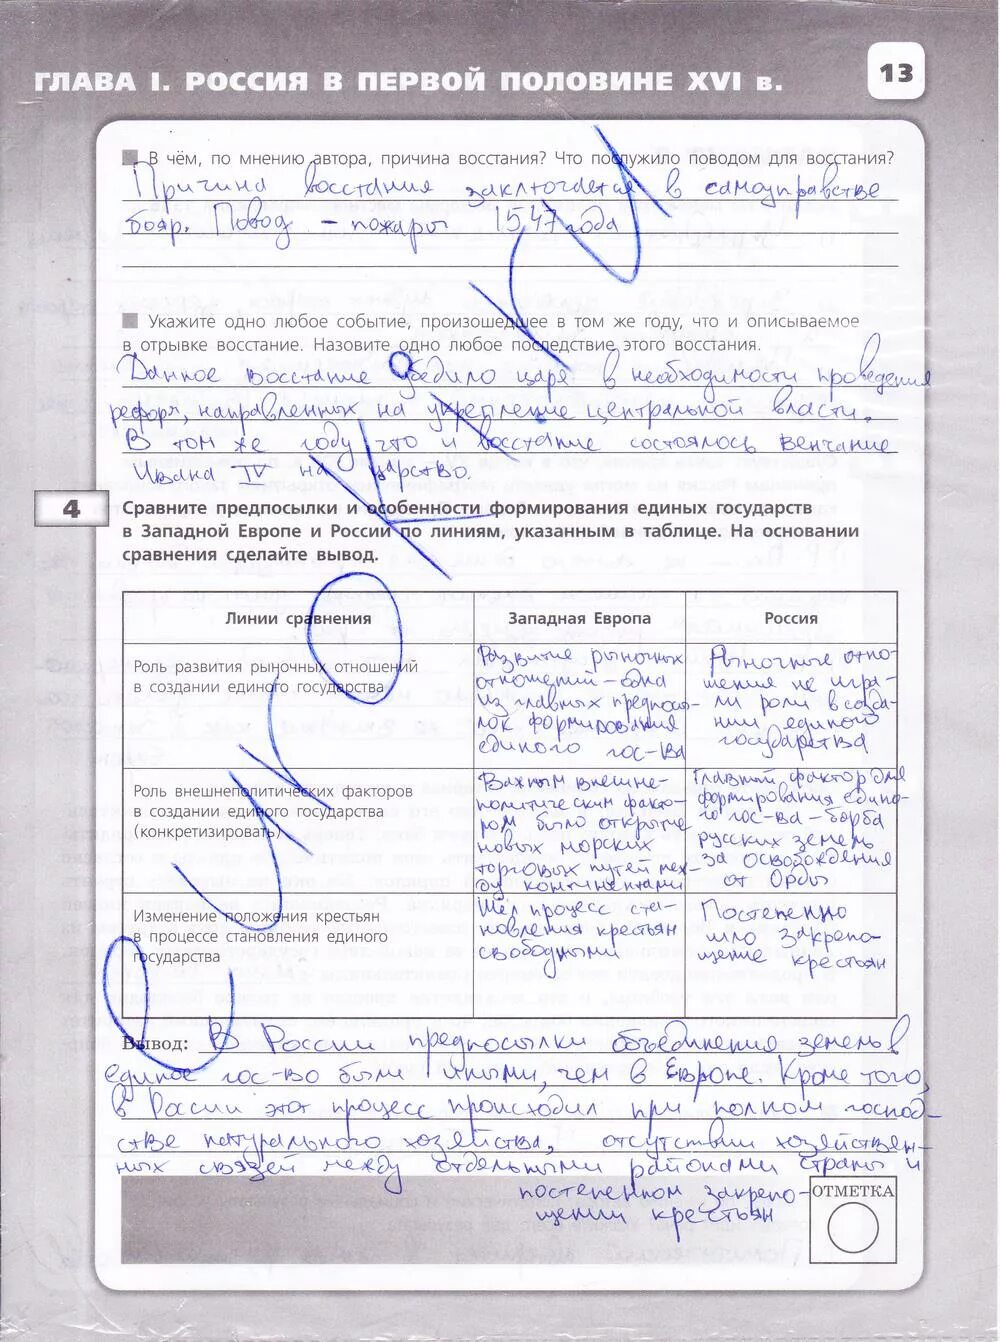 ГЛАВА I. РОССИЯ В ПЕРВОЙ ПОЛОВИНЕ XVI в.
13
В чём, по мнению автора, причина восстания? Что послужило поводом для восстания?
Причина восстания заключается в самоуправстве
бояр. Повод - пожары 1547 года
Укажите одно любое событие, произошедшее в том же году, что и описываемое
в отрывке восстание. Назовите одно любое последствие этого восстания.
Данное восстание убедило царя в необходимости проведения
реформ, направленных на укрепление центральной власти.
В том же году что и восстание состоялось венчание
Ивана IV на царство.
4
Сравните предпосылки и особенности формирования единых государств
в Западной Европе и России по линиям, указанным в таблице. На основании
сравнения сделайте вывод.
Линии сравнения
Западная Европа
Россия
Роль развития рыночных отношений
в создании единого государства
Развитие рыночных
отношений - одна
из главных предпосы-
лок формирования
единого гос-ва
Рыночные отно-
шения не игра-
ли роли в созда-
нии единого
государства
Роль внешнеполитических факторов
в создании единого государства
(конкретизировать)
Важным внешне-
политическим факто-
ром было открытие
новых морских
торговых путей меж-
ду континентами
Главный фактор для
формирования едино-
го гос-ва - борьба
русских земель
за освобождения
от Орды
Изменение положения крестьян
в процессе становления единого
государства
Шёл процесс ста-
новления крестьян
свободными
Постепенно
шло закрепо-
щение крестьян
Вывод: В России предпосылки объединения земель в
единое гос-во были иными, чем в Европе. Кроме того,
в России этот процесс происходил при полном господ-
стве натурального хозяйства, отсутствии хозяйствен-
ных связей между отдельными районами страны и
постепенном закрепо-
щении крестьян
ОТМЕТКА